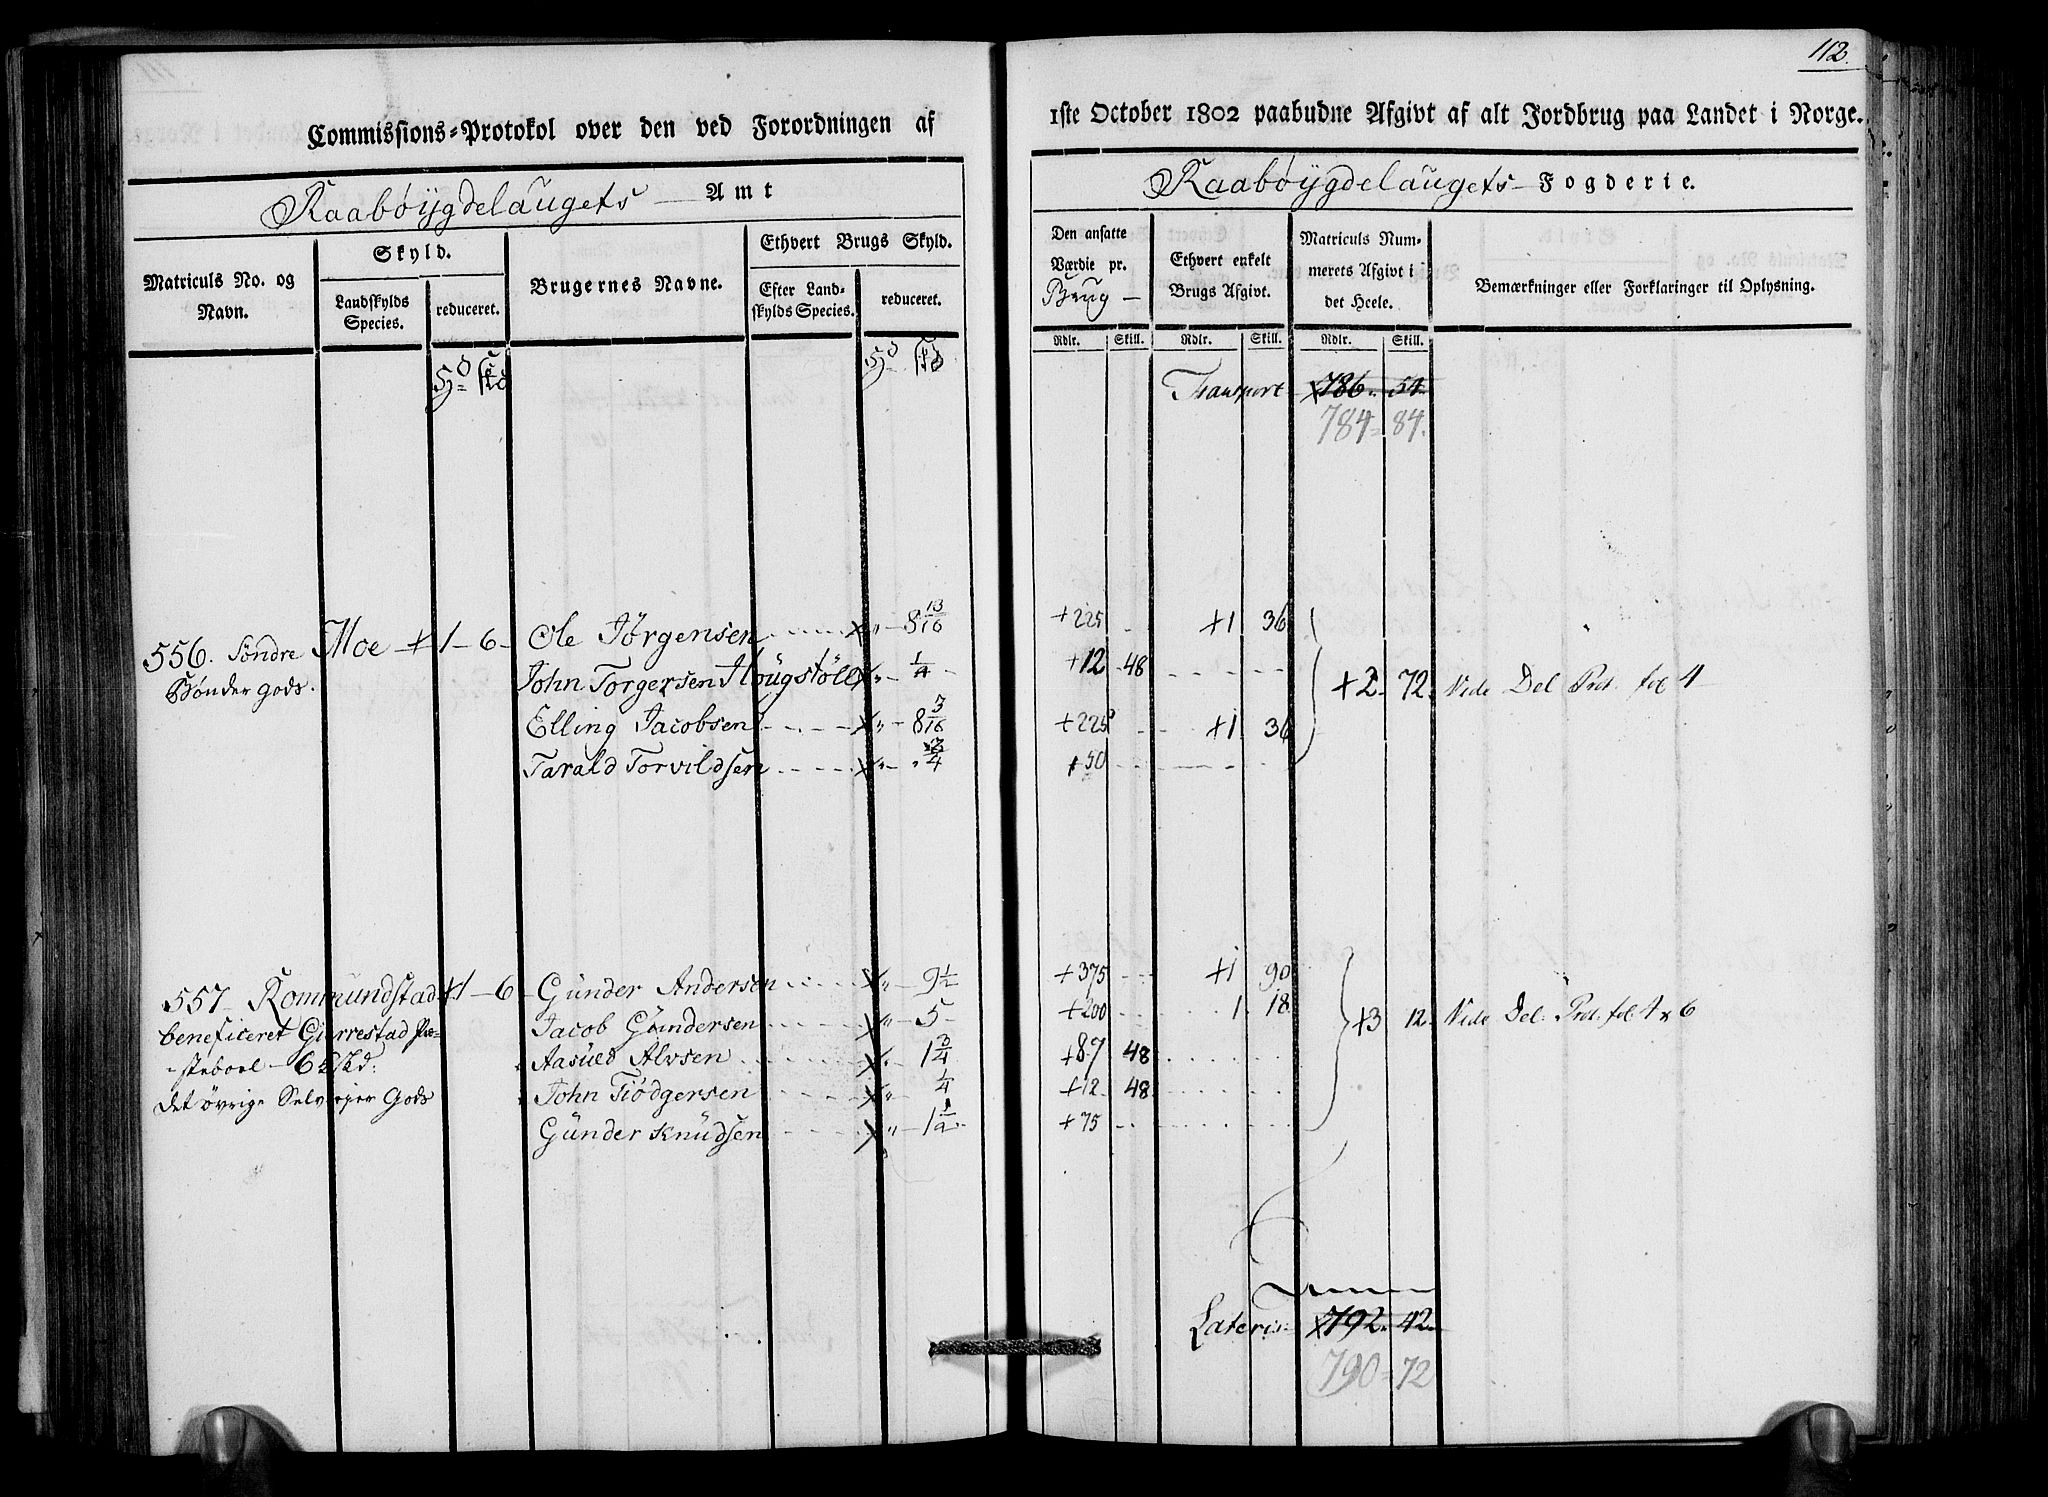 112.
Commissions=Protokol over den ved Forordningen af
1ste October 1802 paabudne Afgivt af alt Jordbrug paa Landet i Norge.
Raabøygdelaugets Amt
Raabøygdelaugets Fogderie.
Matriculs No. og Navn.
Skyld.
Landskylds Species.
reduceret.
Brugernes Navne.
Ethvert Brugs Skyld.
Efter Landskylds Species.
reduceret.
Den ansatte Værdie pr. Brug
Ethvert enkelt Brugs Afgivt.
Matriculs Nummerets Afgivt i det Heele.
Bemærkninger eller Forklaringer til Oplysning.
Rdlr. Skill. Rdlr. Skill. Rdlr. Skill.
Transport 786. 54
784 84.
556. Søndre Moe + 1 - 6 - Ole Jörgensen x " - 8 13/16 +225 - +1 36
Bøndergods. John Torgersen Hougstöll x " - 1/4 - +12 48
+2 72. Vide Del Prot. fol 4
Elling Jacobsen x " - 8 3/16 +225 - +1 36
Tarald Torvildsen x " - 3/4 +50
557 Rommundstad +1 - 6 - Günder Andersen x " - 9 1/2 +375 - +1 90
beneficeret Gierrestad Præ- Jacob Gündersen x " - 5 - +200 1 18
+3 12. Vide Del. Prot. fol. 4 & 6
-steboel - 6 Aasüld Alvsen x " - 1 3/4 +87 48
det øvrige Selvejer Gods John Tiödgersen x " - 1/4 +12 48
Günder Knüdsen x " - 1 1/2 +75
Lateris 792. 42.
790 72